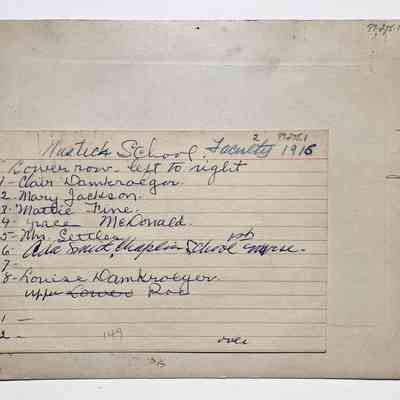 School Faculty 1916
Lower row left to right
1- Clair Damkroeger.
2. Mary Jackson.
3- Mattie Fine.
4- Grace McDonald.
5- Mrs. Settles
6- Ada Smith, Chaplin School nurse.
7-
8- Louise Damkroeger.
upper Lower Roe
1 -
2 -
149
over